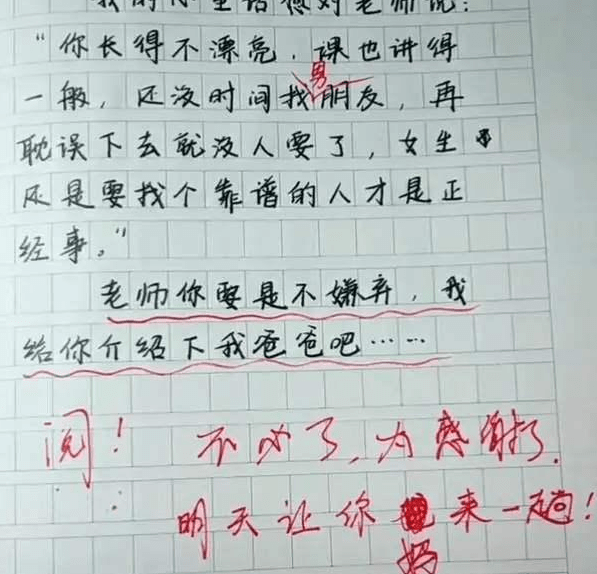 我的心里话想对老师说：
“你长得不漂亮，课也讲得
一般，还没时间找男朋友，再
耽误下去就没人要了，女生
还是要找个靠谱的人才是正
经事。”
老师你要是不嫌弃，我
给你介绍下我爸爸吧……
阅！ 不必了，感谢了，
明天让你妈来一趟！